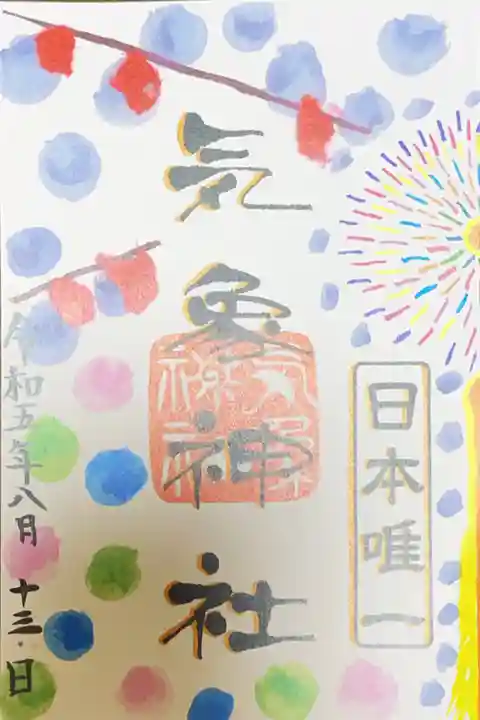 日本唯一
気象神社
気象神社
令和五年八月十三日